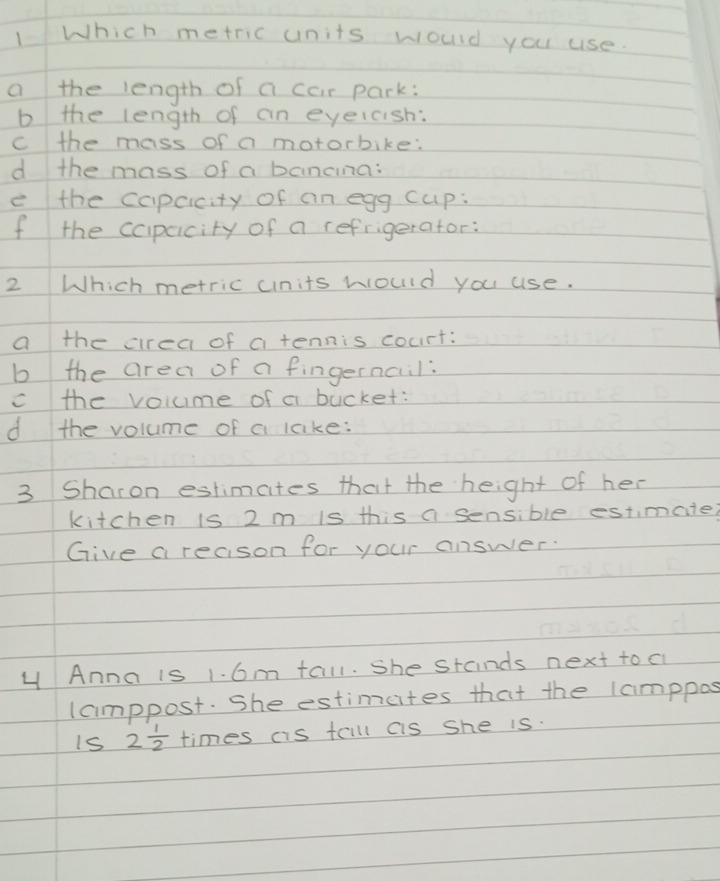 1 Which metric units would you use.
a the length of a car park:
b the length of an eyelash:
c the mass of a motorbike:
d the mass of a banana:
e the capacity of an egg cup:
f the capacity of a refrigerator:
2 Which metric units would you use.
a the area of a tennis court:
b the area of a fingernail:
c the volume of a bucket:
d the volume of a lake:
3 Sharon estimates that the height of her
kitchen is 2 m is this a sensible estimate?
Give a reason for your answer.
4 Anna is 1.6m tall. She stands next to a
lamppost. She estimates that the lamppos
is 2 1/2 times as tall as she is.